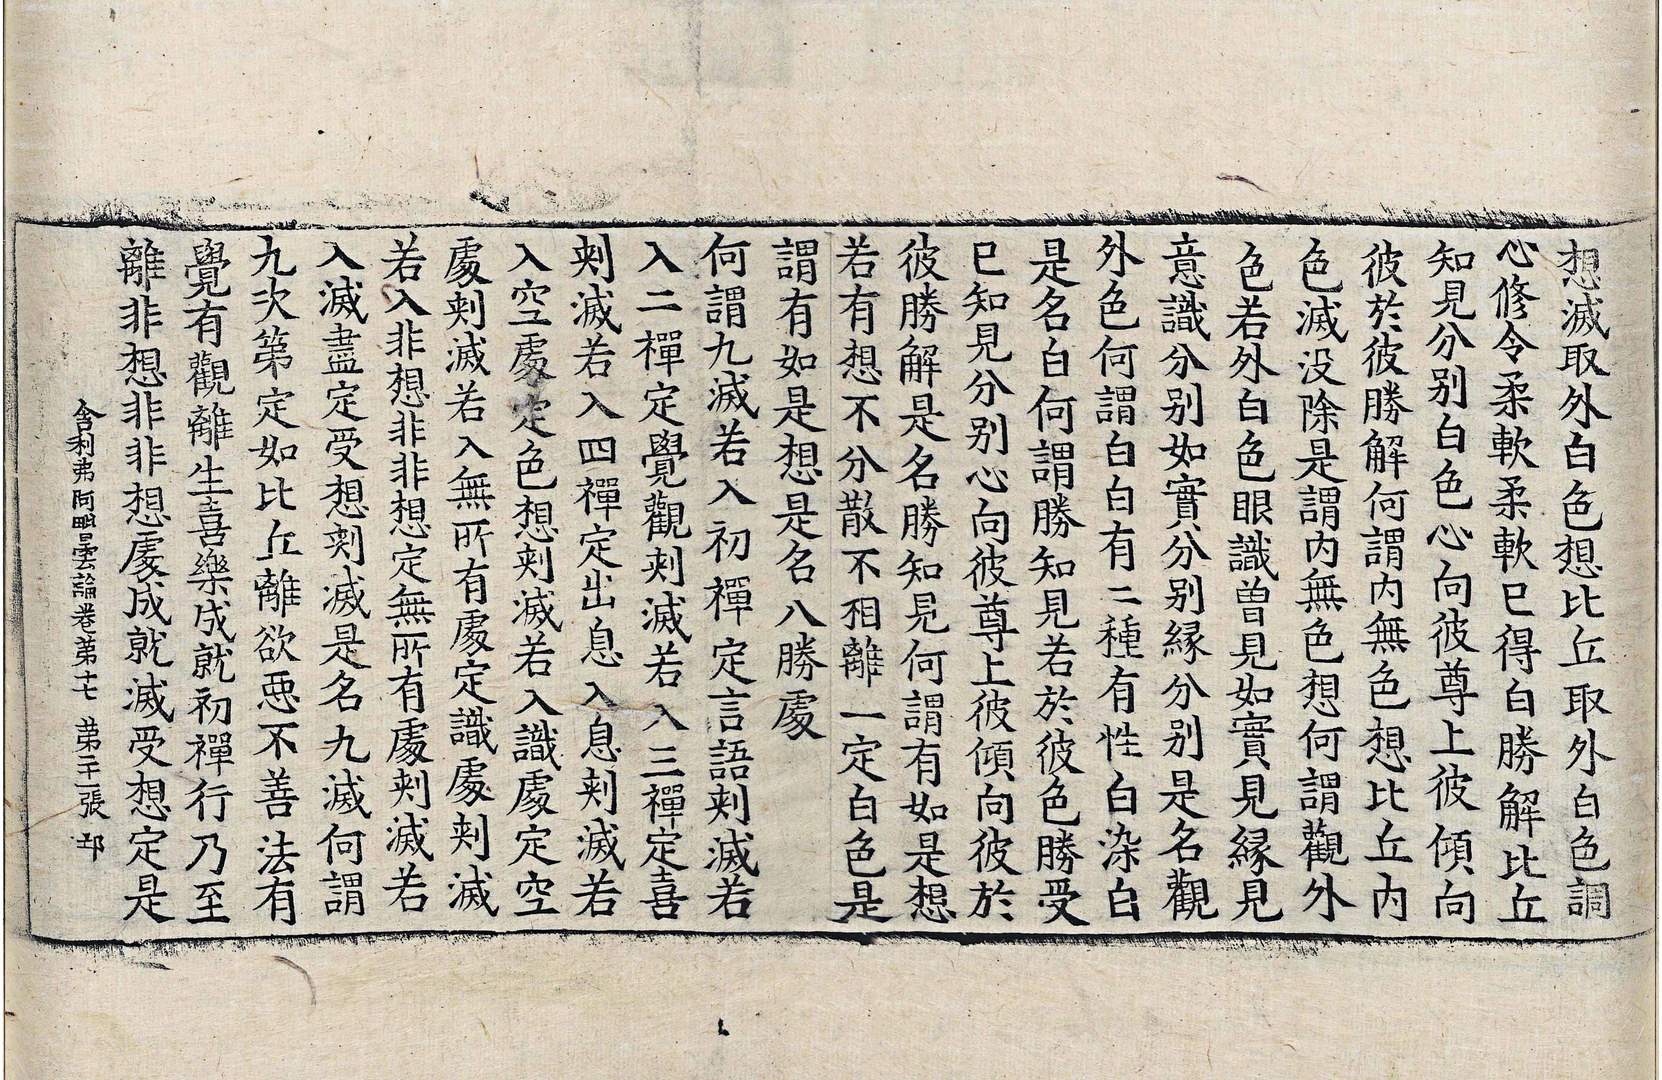 想滅取外白色想比丘取外白色調
心修令柔軟柔軟已得白勝解比丘
知見分别白色心向彼尊上彼傾向
彼於彼勝解何謂内無色想比丘内
色滅没除是謂内無色想何謂觀外
色若外白色眼識曽見如實見縁見
意識分别如實分别縁分别是名觀
外色何謂白白有二種有性白染白
是名白何謂勝知見若於彼色勝受
已知見分别心向彼尊上彼傾向彼於
彼勝解是名勝知見何謂有如是想
若有想不分散不相離一定白色是
謂有如是想是名八勝處
何謂九滅若入初禪定言語刾滅若
入二禪定覺觀刾滅若入三禪定喜
刾滅若入四禪定出息入息刾滅若
入空處定色想刾滅若入識處定空
處刾滅若入無所有處定識處刾滅
若入非想非非想定無所有處刾滅若
入滅盡定受想刾滅是名九滅何謂
九次第定如比丘離欲悪不善法有
覺有觀離生喜樂成就初禪行乃至
離非想非非想處成就滅受想定是
舎利弗阿毗曇論卷第十七 第二十二張 邙